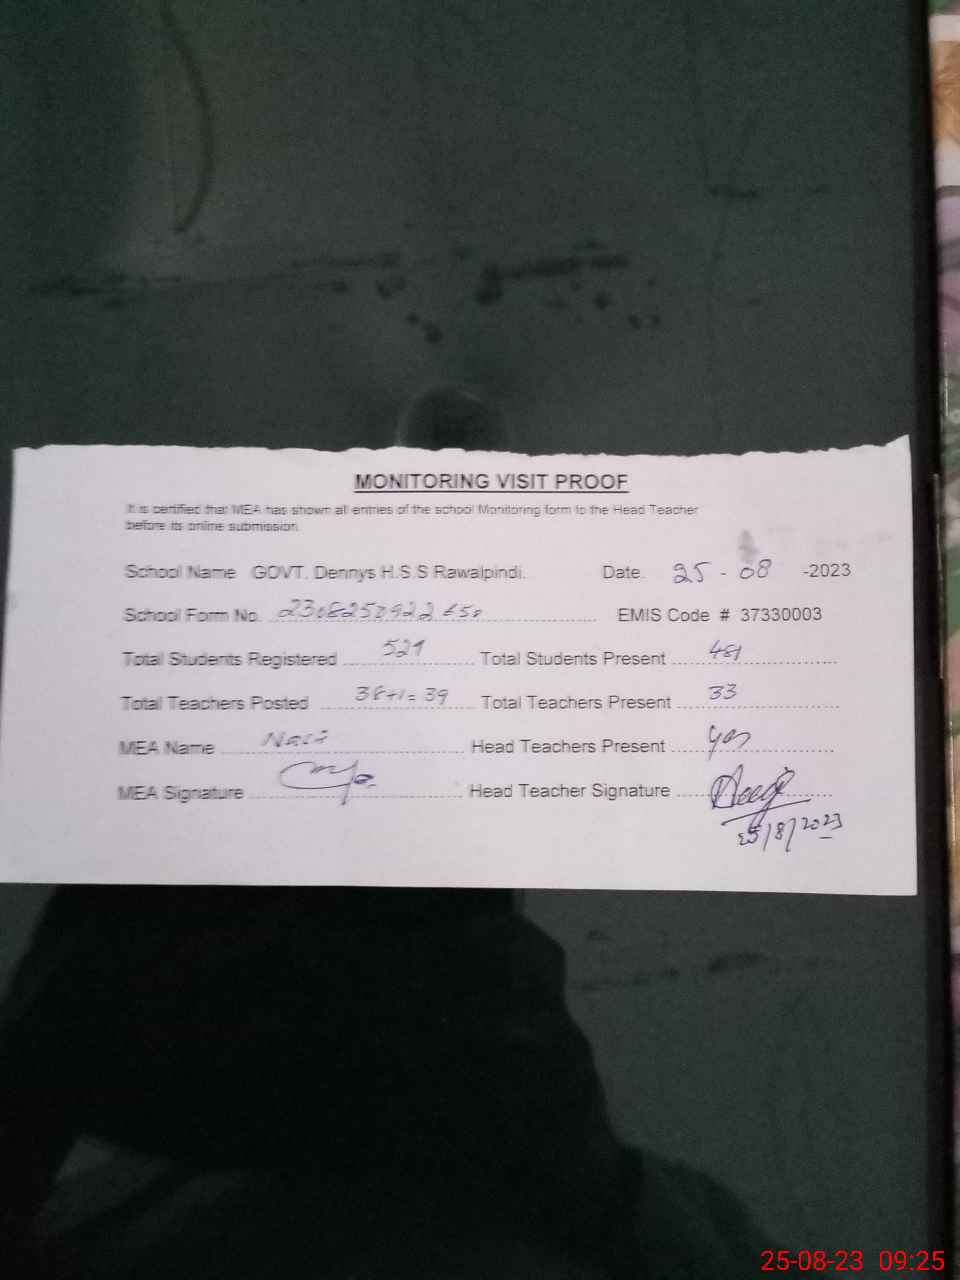 MONITORING VISIT PROOF
It is certified that MEA has shown all entries of the school Monitoring form to the Head Teacher
before its online submission.
School Name GOVT. Dennys H.S.S Rawalpindi. Date. 25 - 08 -2023
School Form No. EMIS Code # 37330003
Total Students Registered Total Students Present 481
Total Teachers Posted 38+1=39 Total Teachers Present 33
MEA Name Head Teachers Present yes
MEA Signature Head Teacher Signature
25/8/2023
25-08-23 09:25